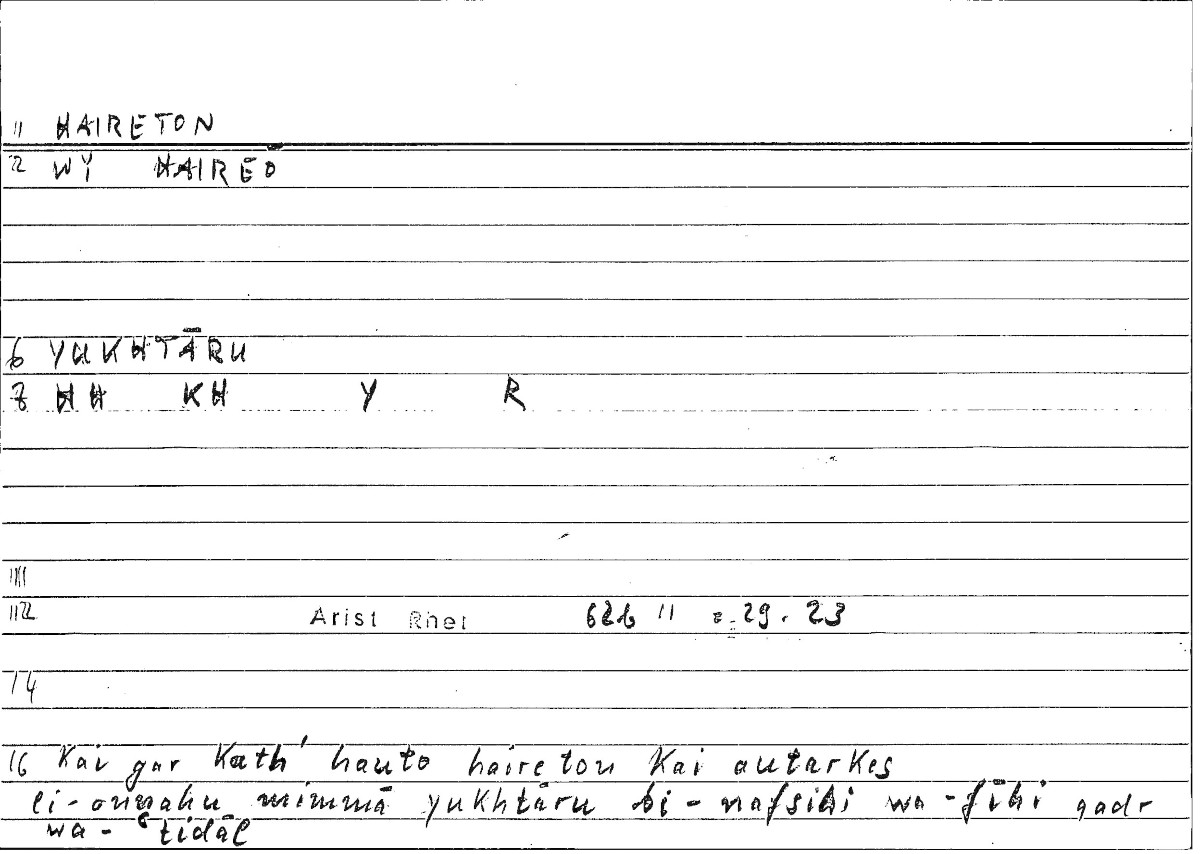 11 HAIRETON
22 WY HAIREŌ
6 YUKHTĀRU
7 HH KH Y R
1111
1122 Arist Rhet 62b 11 = 29.23
14
16 Kai gar Kath' hauto haireton Kai autarkes
li-annahu mimmā yukhtāru bi-nafsihi wa-fīhi qadr
wa-ʿtidāl